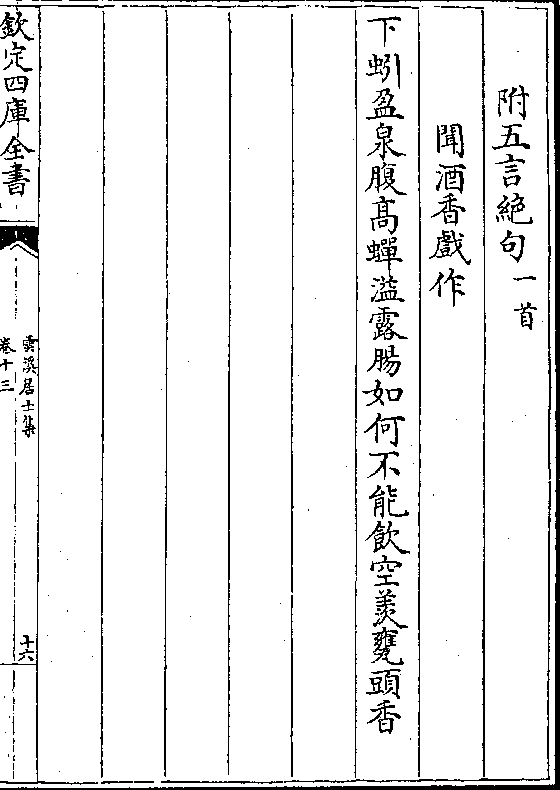 附五言絶句一首
聞酒香戲作
下蚓盈泉腹髙蟬溢露腸如何不能飲空羡甕頭香
欽定四庫全書
雲溪居士集
卷十三
十六